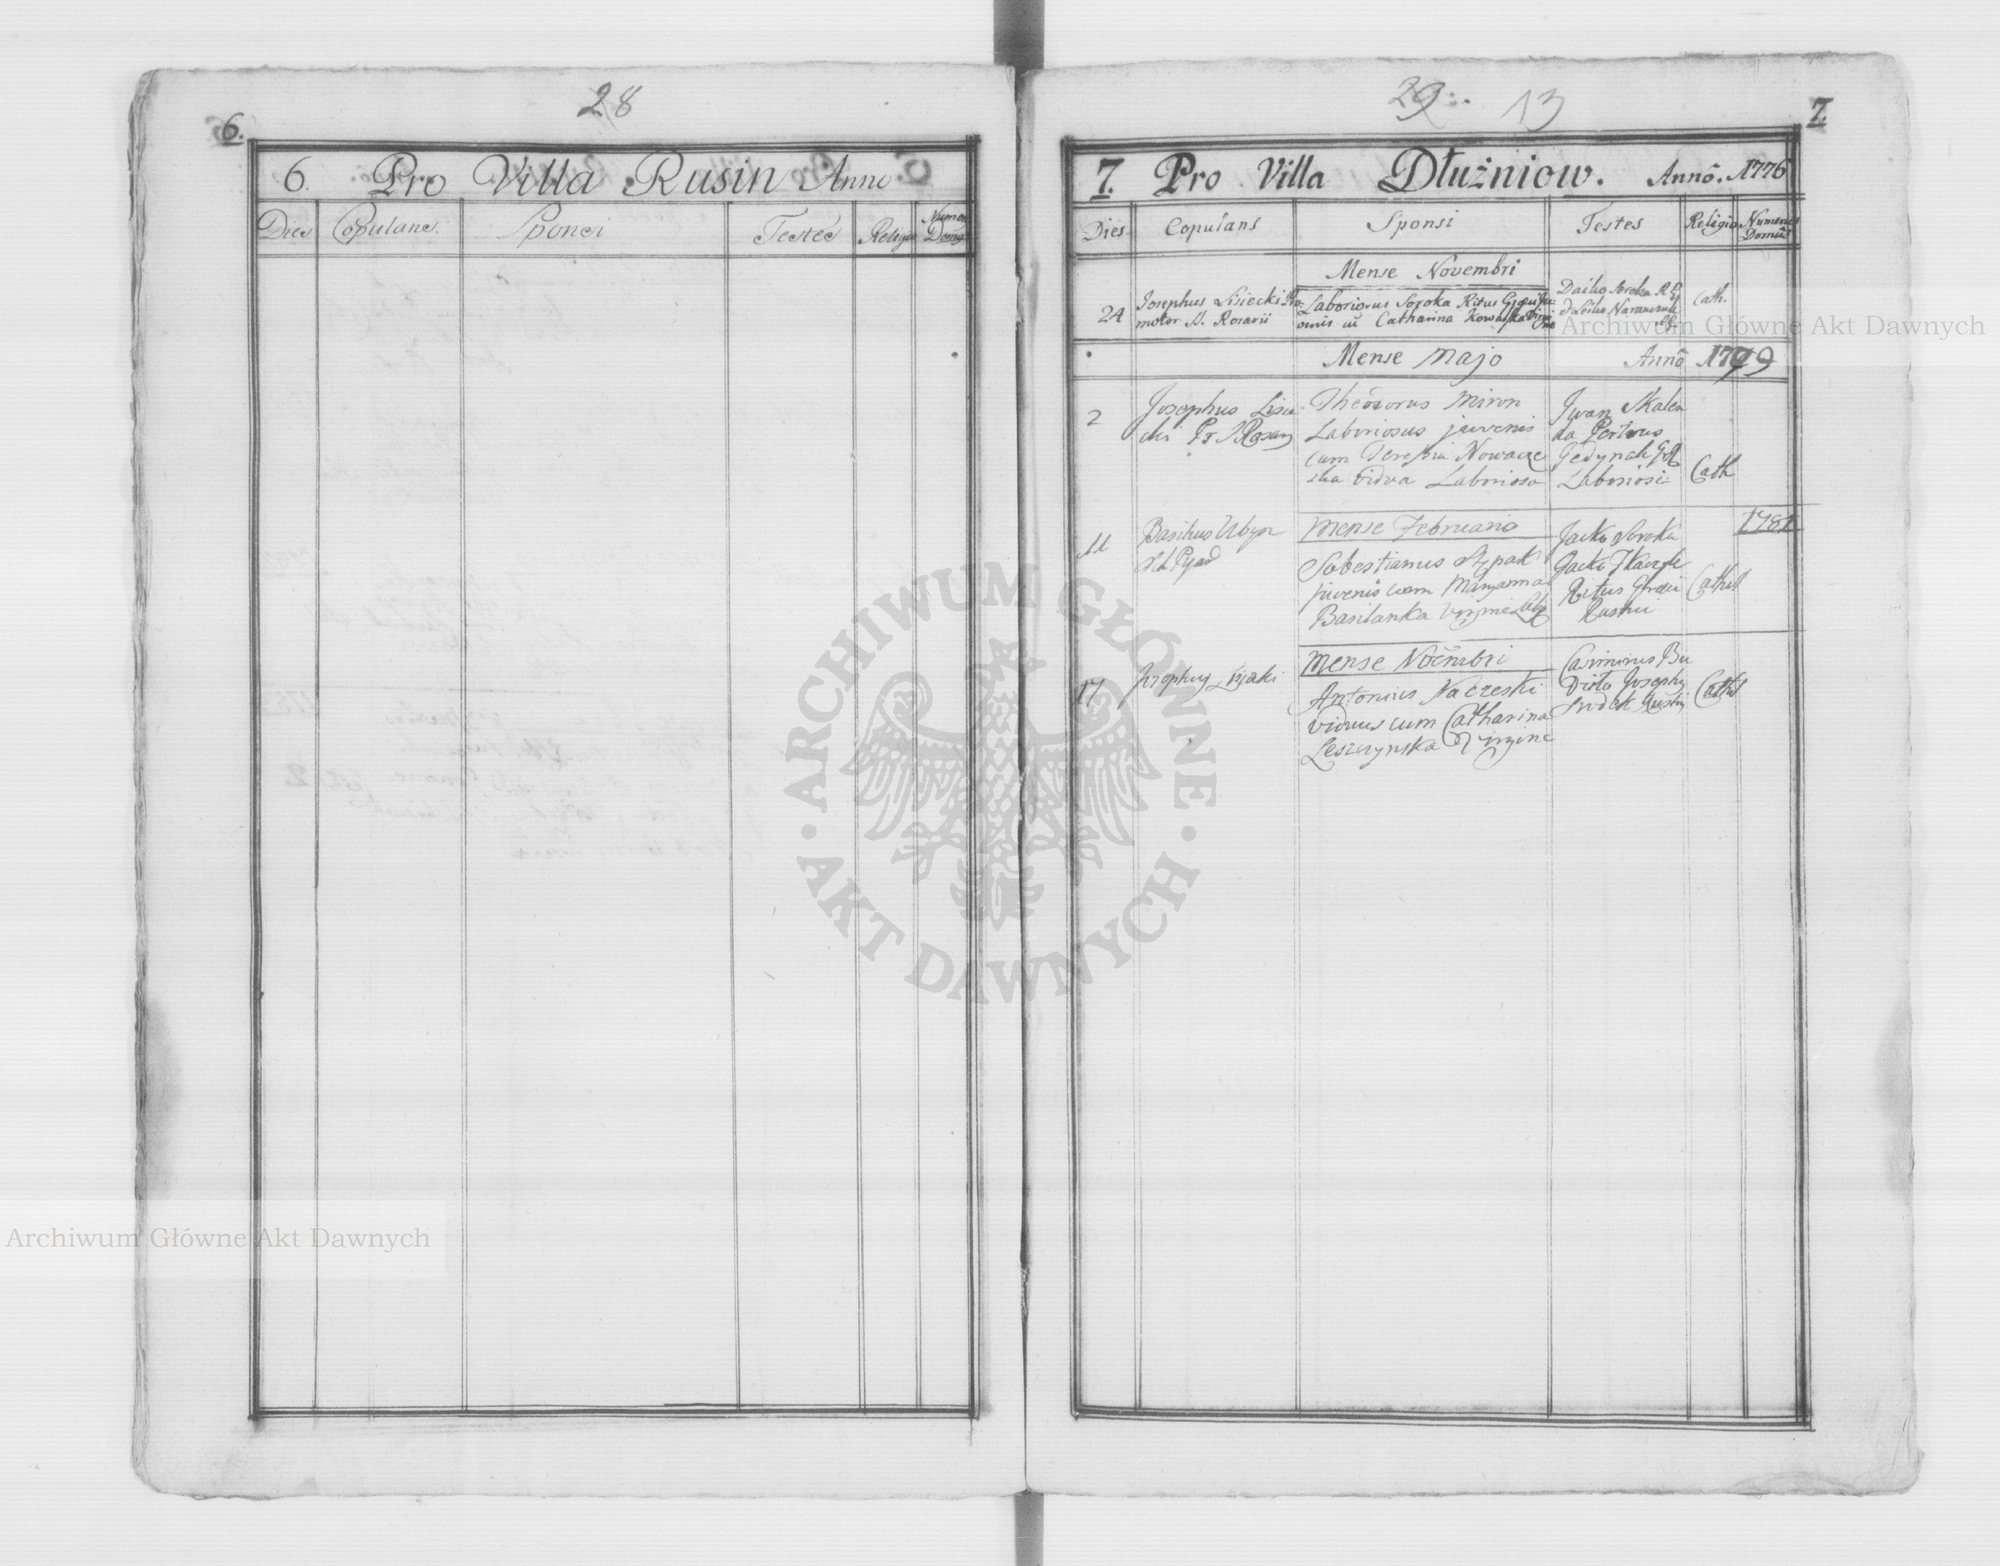 28
6.
6. Pro Villa Rusin Anno
Dies Copulans. Sponsi Testes Religio Numerus Domus
29 13
7.
7. Pro Villa Dłużniow. Annô. 1776
Dies Copulans Sponsi Testes Religio Numerus Domûs
Mense Novembri
24 Josephus Lisiecki Pro-
motor S. Rosarii
Laboriosus Soroka Ritus Graeci Ju-
venis cū Catharina Kowalska Virgi
Soroka
Cath.
Mense Majo Annô 1779
2 Josephus Lisie-
cki Pr S Rosarij
Theodorus Miron
Laboriosus juvenis
cum Teressia Nowacze
ska vidva Laboriosa
Iwan Skalen
da Pertrus
Gedynak GR
Laboriosi
Cath
1781
Mense Februario
11 Basilius
Sobestianus Szpak
juvenis cum Maryanna
Basilanka virgine
Jacko Soroka
Jacko Tkaczyk
Ritus Graeci
Rustici
Cathol
Mense Novembri
17 Josephus Lisiecki
Antonius Naczeski
viduus cum Catharina
Leszczynska Virgine
Casimirus Bu
Josephus
Cathol
Archiwum Główne Akt Dawnych
Archiwum Główne Akt Dawnych
ARCHIWUM GŁÓWNE
· AKT DAWNYCH ·